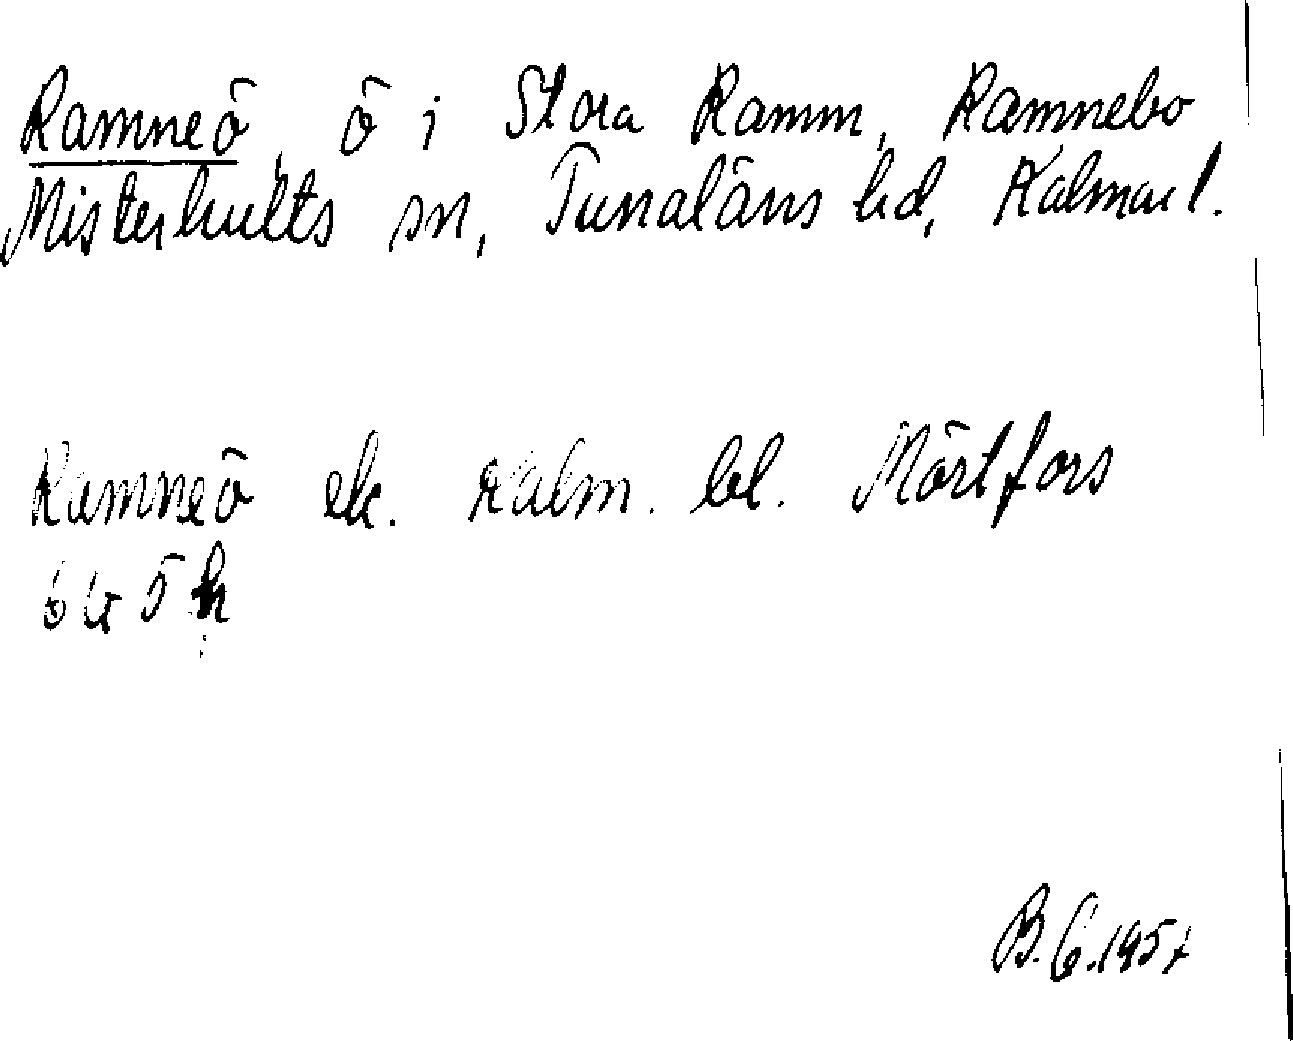 Ramneö, ö i Stora Ramm, Ramnebo
Misterhults sn, Tunaläns hd, Kalmar l.
Ramneö ek. Kalm. bl. Mörtfors
6G 5h
B.G. 1957